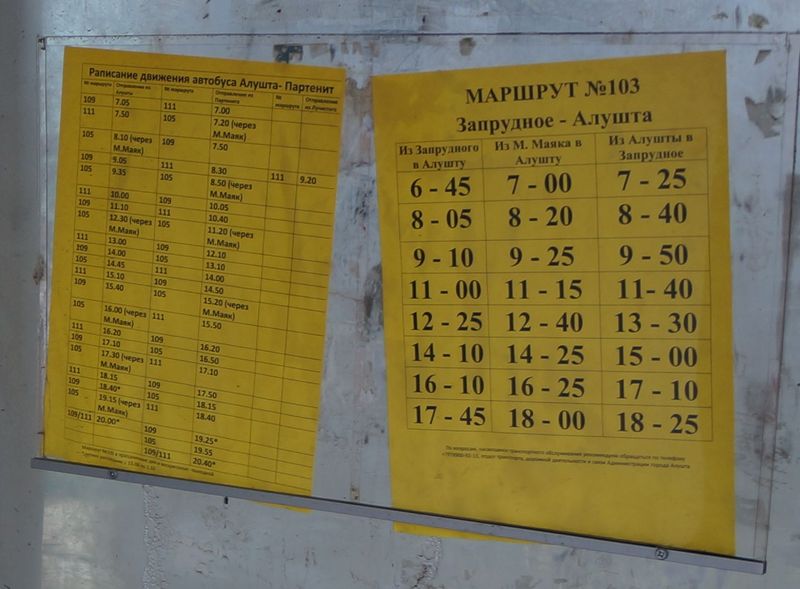 Раписание движения автобуса Алушта- Партенит
№ маршрута Отправление из Алушты № маршрута Отправление из Партенита № маршрута Отправление из Лучистого
109 7.05 111 7.00
111 7.50 105 7.20 (через М.Маяк)
105 8.10 (через М.Маяк) 109 7.50
109 9.05 111 8.30 111 9.20
105 9.35 105 8.50 (через М.Маяк)
111 10.00 109 10.05
109 11.10 111 10.40
105 12.30 (через М.Маяк) 105 11.20 (через М.Маяк)
111 13.00 109 12.10
109 14.00 105 13.10
105 14.45 111 14.00
111 15.10 109 14.50
109 15.40 105 15.20 (через М.Маяк)
105 16.00 (через М.Маяк) 111 15.50
111 16.20 109 16.20
109 17.10 105 16.50
105 17.30 (через М.Маяк) 111 17.10
111 18.15 109 17.50
109 18.40* 105 18.15
105 19.15 (через М.Маяк) 111 18.40
109/111 20.00* 109 19.25*
105 19.55
109/111 20.40*
МАРШРУТ №103
Запрудное - Алушта
Из Запрудного в Алушту Из М. Маяка в Алушту Из Алушты в Запрудное
6 - 45 7 - 00 7 - 25
8 - 05 8 - 20 8 - 40
9 - 10 9 - 25 9 - 50
11 - 00 11 - 15 11- 40
12 - 25 12 - 40 13 - 30
14 - 10 14 - 25 15 - 00
16 - 10 16 - 25 17 - 10
17 - 45 18 - 00 18 - 25
По вопросам, касающимся транспортного обслуживания рекомендуем обращаться по телефону
отдел транспорта, дорожной деятельности и связи Администрации города Алушта